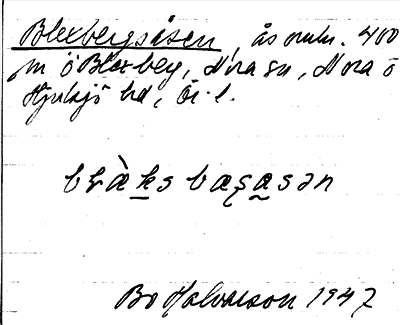 Blexbergsåsen, ås omkr. 400
m ö Blexberg, Nora sn, Nora o
Hjulsjö hd, Ör. l.
bl̀aksbaʂasən
Bo Halvarson 1947